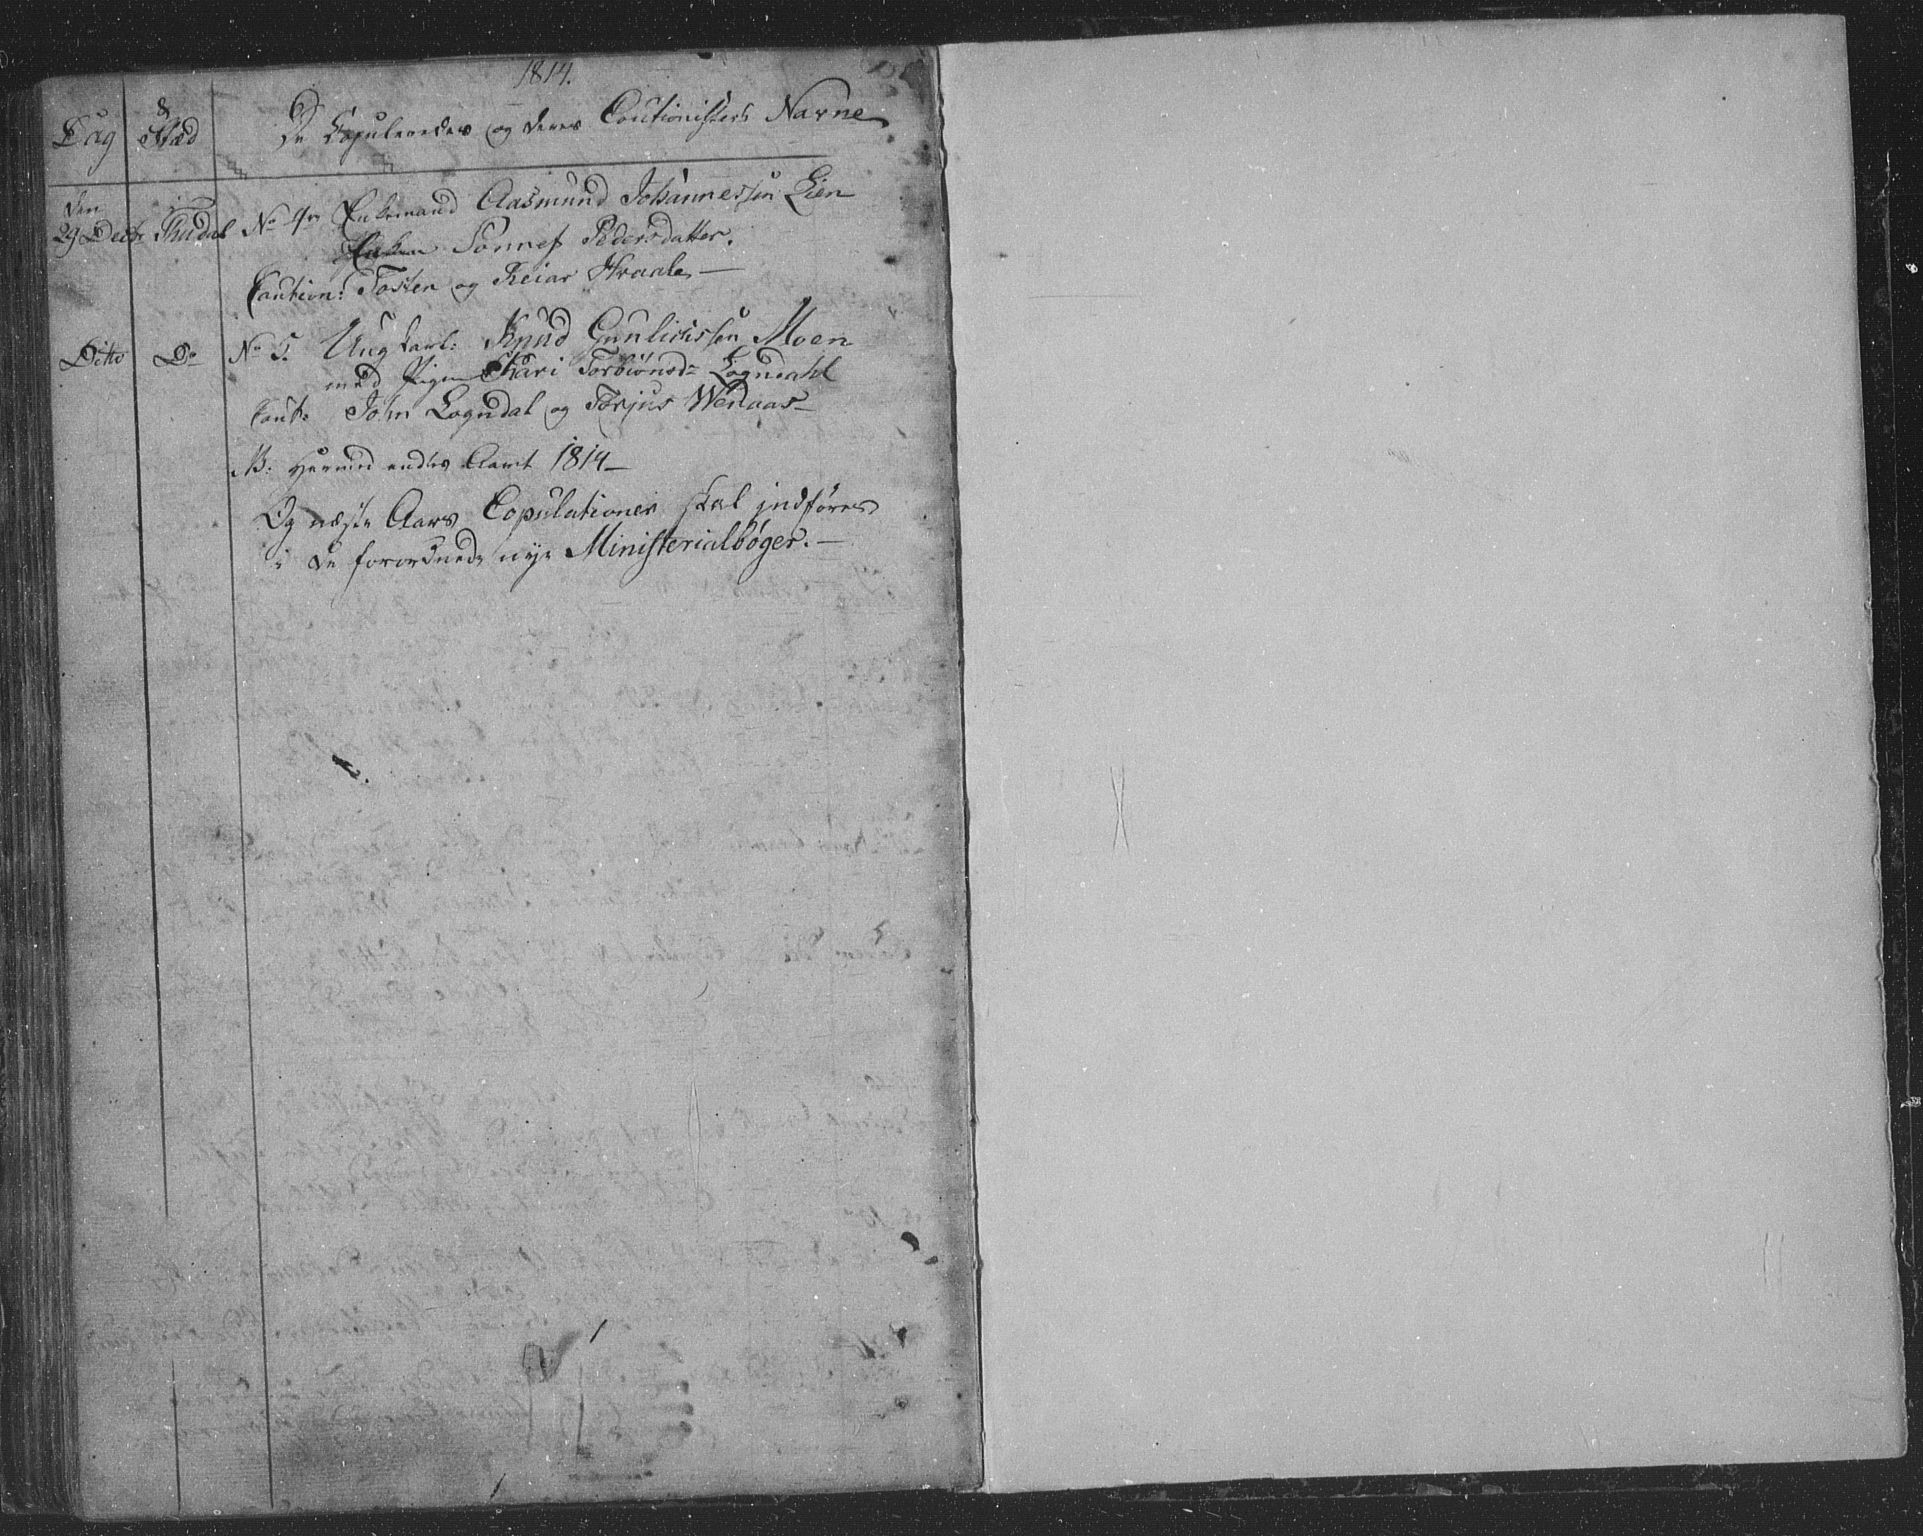 1814.
Dag & Stæd De Copuleredes og deres Cautionisters Navne
den
29 Decbr Thudal No 4 Enkemand Aasmund Johannessen Lien
Enken Sønnef Pedersdatter.
Caution: Tosten og Reiar Hraale —
Ditto Do No 5. Ung Karl: Knud Gunlichssen Moen
med Pigen Kari Torbiønsd: Logndahl
Caut: John Logndal og Torjus Wenaas —
NB: Hermed endes Aaret 1814 —
Og næste Aars Copulationer skal indføres
i de forordnede nye Ministerialbøger. —